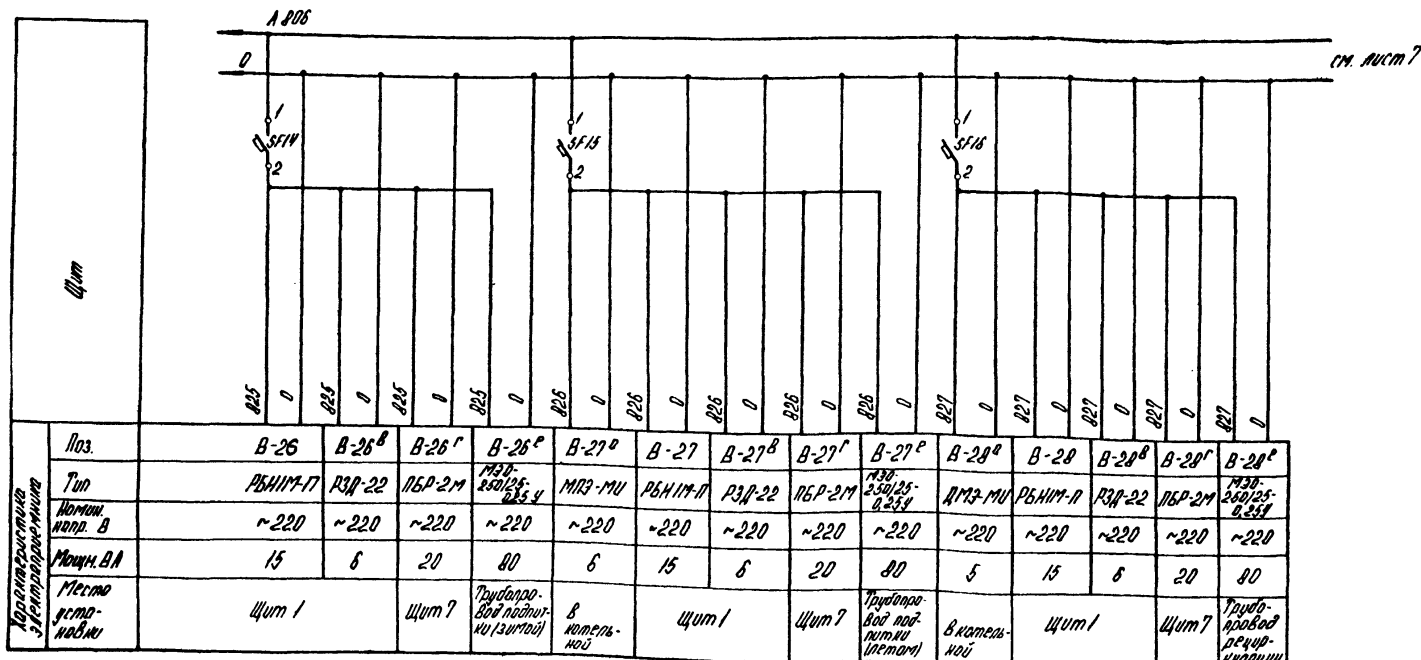 А 806
0
см. лист 7
1
SF14
2
1
SF15
2
1
SF16
2
Щит
825 0 825 0 825 0 825 0 826 0 826 0 826 0 826 0 826 0 827 0 827 0 827 0 827 0 827 0
Характеристика электроприемника
Поз. В-26 В-26в В-26г В-26е В-27а В-27 В-27в В-27г В-27е В-28а В-28 В-28в В-28г В-28е
Тип РБНIМ-П РЗД-22 ПБР-2М МЭО-250/25-0,25У МПЭ-МИ РБНIМ-П РЗД-22 ПБР-2М МЭО-250/25-0,25У ДМЭ-МИ РБНIМ-П РЗД-22 ПБР-2М МЭО-250/25-0,25У
Номин. напр. В ~220 ~220 ~220 ~220 ~220 ~220 ~220 ~220 ~220 ~220 ~220 ~220 ~220 ~220
Мощн. ВА 15 6 20 80 6 15 6 20 80 5 15 6 20 80
Место установки Щит 1 Щит 7 Трубопровод подпитки (зимой) В котельной Щит 1 Щит 7 Трубопровод подпитки (летом) В котельной Щит 1 Щит 7 Трубопровод рециркуляции